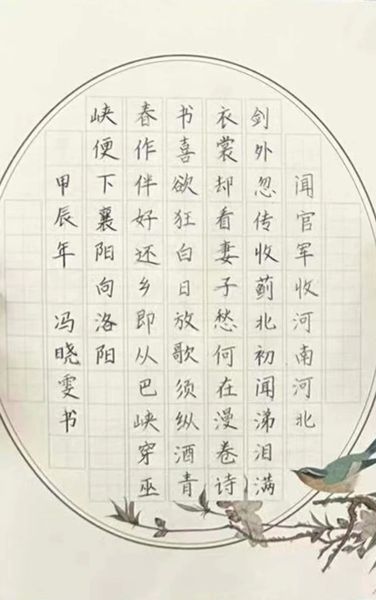 闻官军收河南河北
剑外忽传收蓟北初闻涕泪满
衣裳却看妻子愁何在漫卷诗
书喜欲狂白日放歌须纵酒青
春作伴好还乡即从巴峡穿巫
峡便下襄阳向洛阳
甲辰年 冯晓雯书